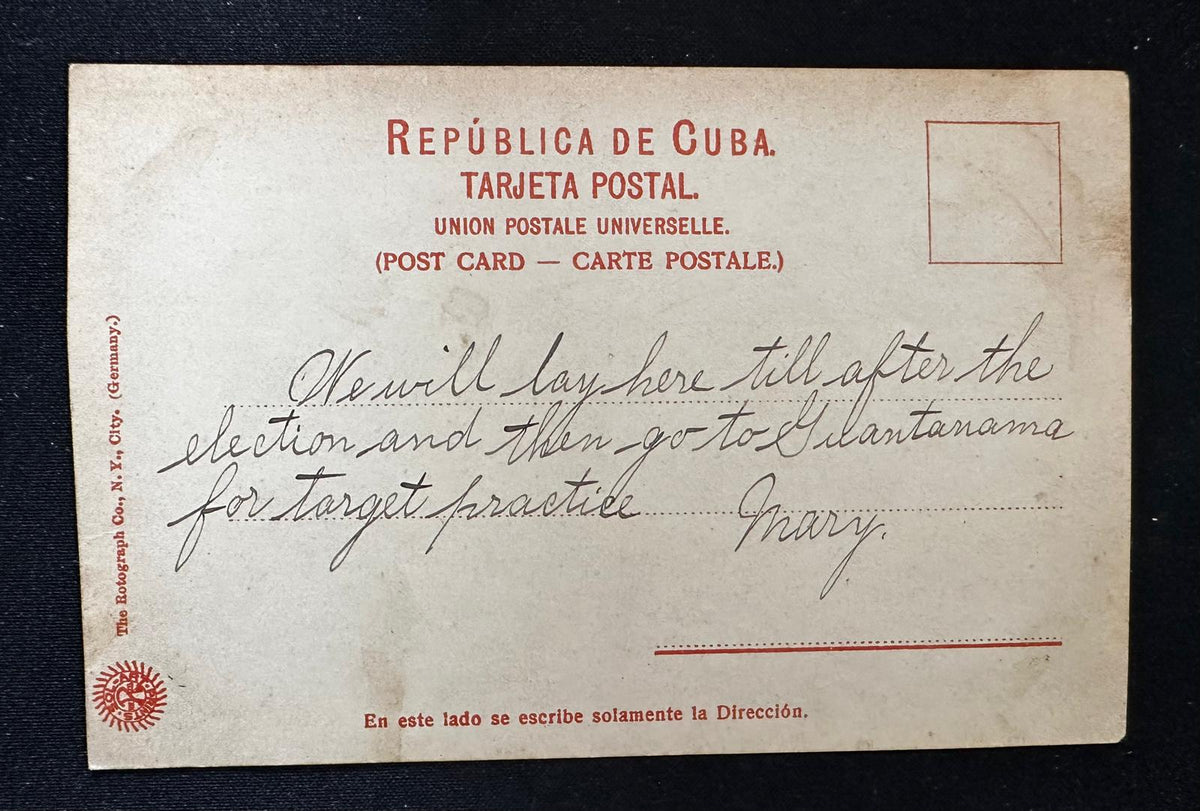 REPÚBLICA DE CUBA.
TARJETA POSTAL.
UNION POSTALE UNIVERSELLE.
(POST CARD — CARTE POSTALE.)
We will lay here till after the
election and then go to Guantanama
for target practice Mary.
The Rotograph Co., N. Y., City. (Germany.)
En este lado se escribe solamente la Dirección.